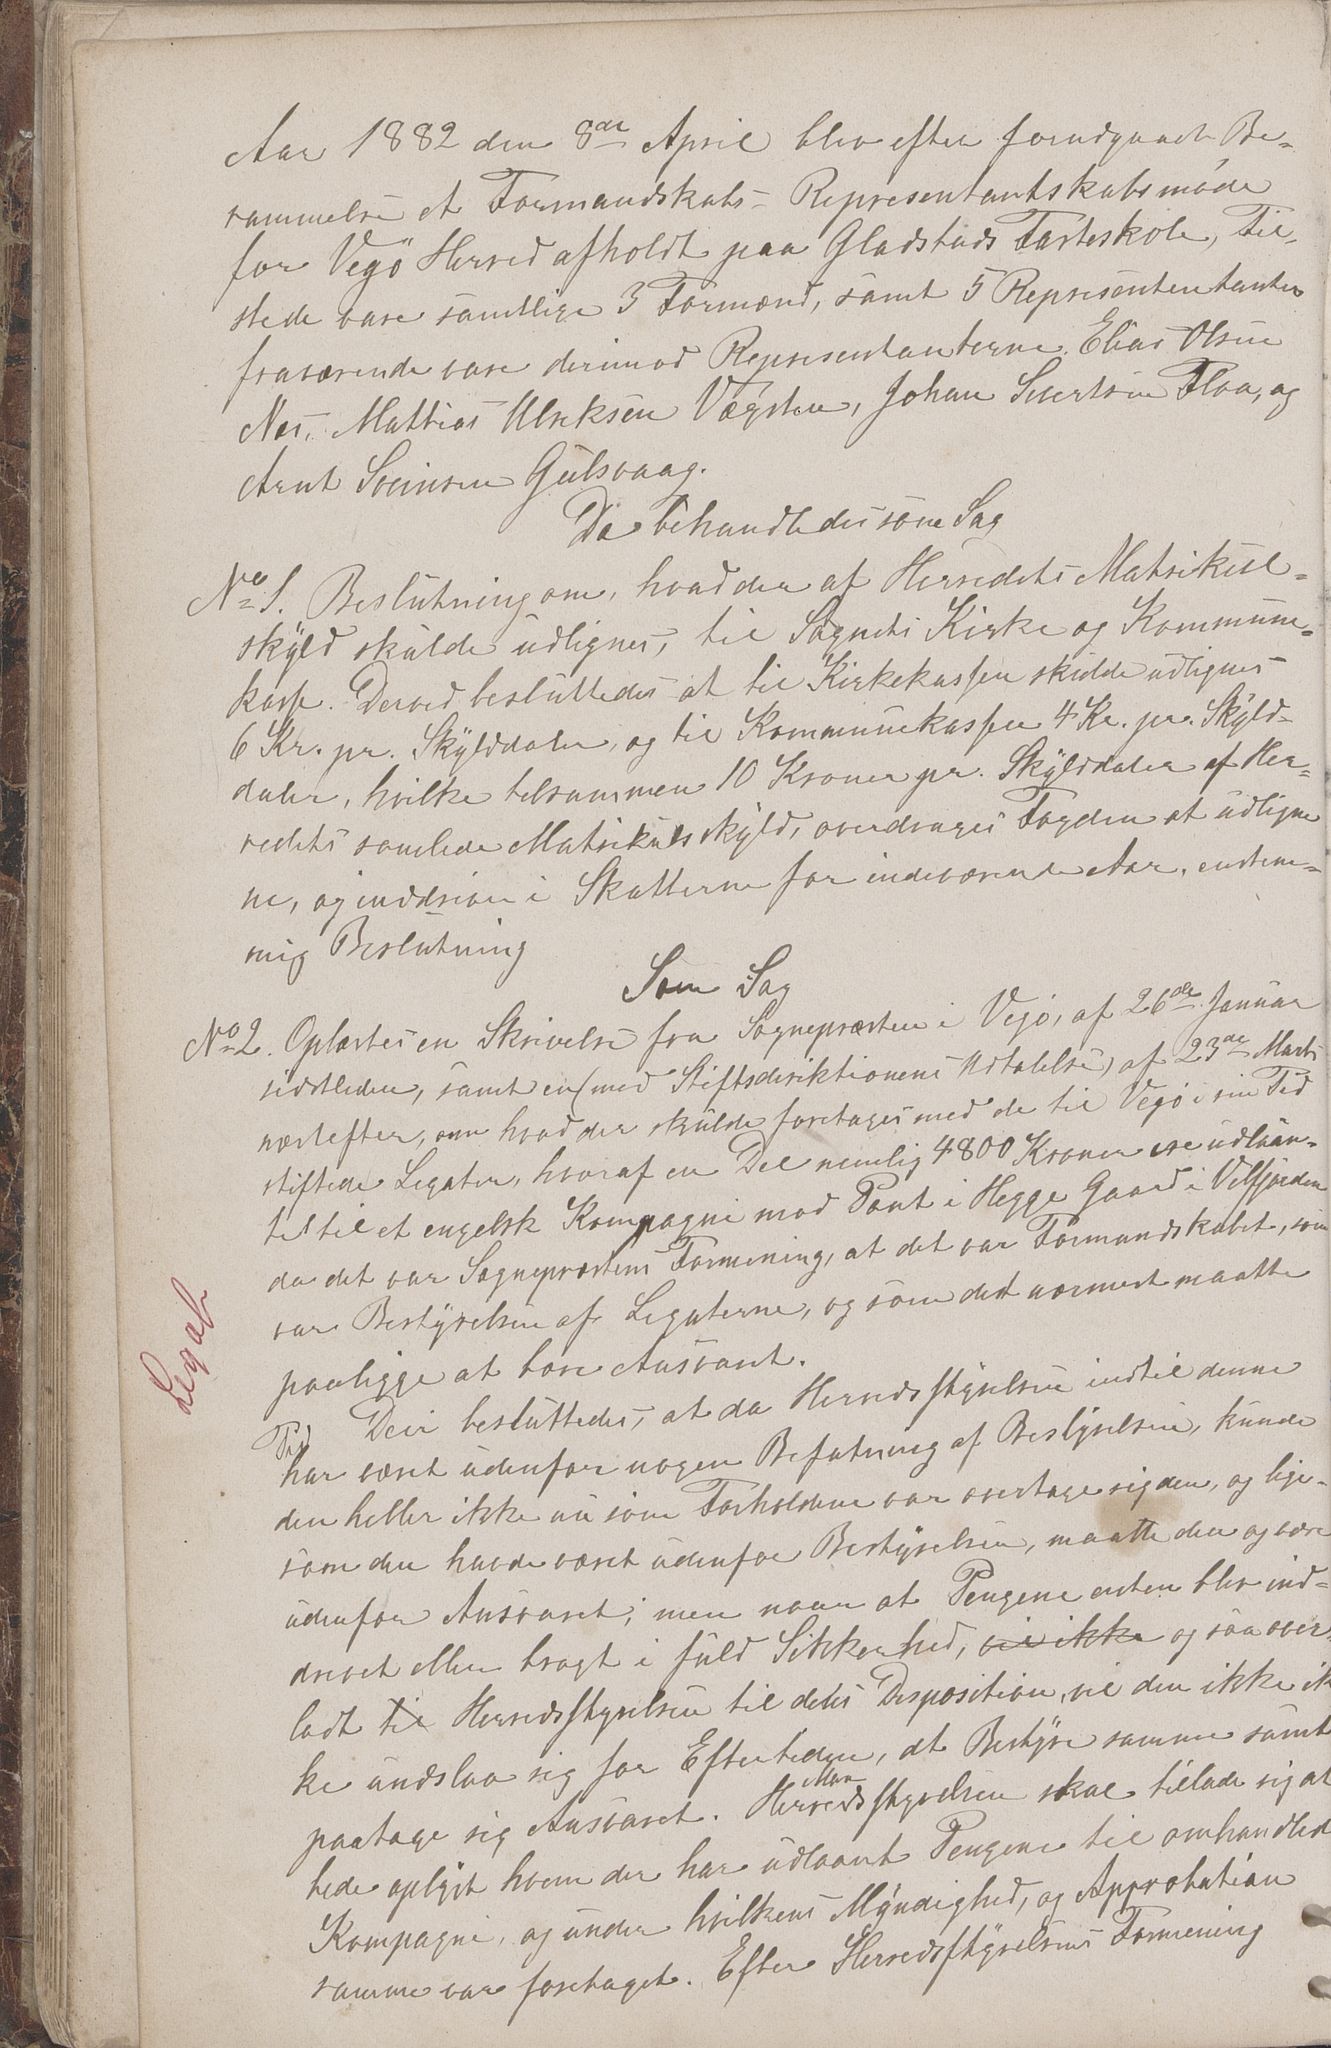 Aar 1882 den 8de April blev efter forudgaaet Be-
rammelse et Formandskabs- Representantskabsmøde
for Vegö Herred afholdt paa Gladstads Fasteskole, Til-
stede vare samtlige 3 Formænd, samt 5 Representententanter
fraværende vare derimod Representanterne Elias Olsen
Nes, Mathias Ulriksen Vægsten, Johan Sivertsen Floa, og
Arnt Sveinsen Gulsvaag.
Da behandledes som Sag
No 1. Beslutning om, hvad der af Herredets Matrikul-
skyld skulde udlignes, til Sognets Kirke og Kommune-
kasse. Derved besluttedes at til Kirkekassen skulde udlignes
6 Kr. pr. Skylddaler, og til Kommunekassen 4 Kr. pr. Skyld-
daler, hvilke telsammen 10 Kroner pr. Skylddaler af Her-
redets samlede Matrikulsskyld, overdrages Fogden at udligne
ne, og inddrive i Skatterne for indeværende Aar, enstem-
mig Beslutning
Som Sag
No 2. Oplæstes en Skrivelse fra Sognepræsten i Vegö, af 26de Januar
sidstleden, samt en (med Stiftsdirektionens Udtalelse) af 23de Marts
næstefter, om hvad der skulde foretages med de til Vegö i sin Tid
stiftede Legater, hvoraf en Del nemlig 4800 Kroner ere udlaan-
te til et engelsk Kompagni mod Pant i Hegge Gaard i Velfjorden
da det var Sognepræstens Formening, at det var Formandskabet, som
var Bestyrelsen af Legaterne, og som det nærmest maatte
paaligge at bære Ansvaret.
Legat
Deri besluttedes, at da Herredsstyrelsen indtil denne
Tid
har været udenfor nogen Befatning af Bestyrelsen, kunde
den heller ikke nu som Forholdene var overtage sig den, og lige-
som den havde været udenfor Bestyrelsen, maatte den og være
udenfor Ansvaret; men naar at Pengene enten blev ind-
drevet eller bragt i fuld Sikkerhed, vil ikke og saa over-
ladt til Herredsstyrelsen til dets Disposition, vil den ikke ik
ke undslaa sig for Eftertiden, at Bestyre samme samt
paatage sig Ansvaret. Herredsstyrelsen skal tillade sig at
bede oplyst hvem der har udlaant Pengene til omhandlede
Kompagni, og under hvilkens Myndighed, og Approbation
samme var foretaget. Efter Herredsstyrelsens Formening